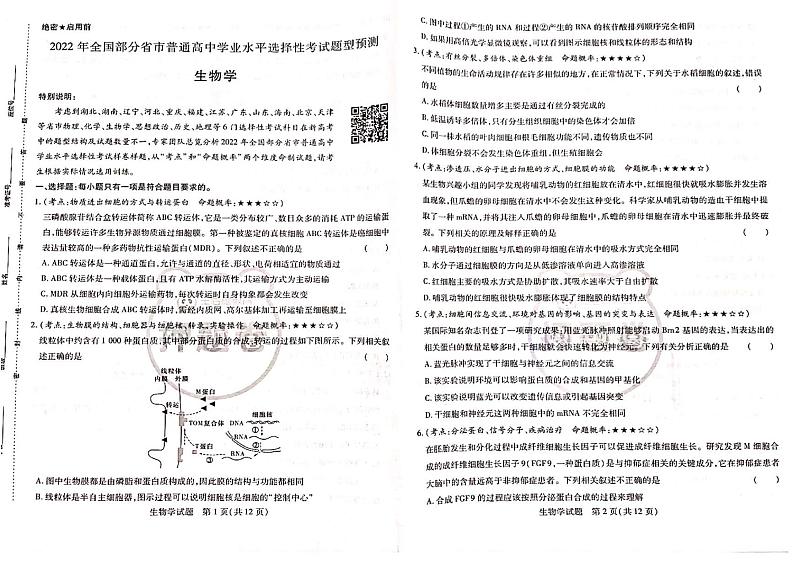 绝密★启用前
2022 年全国部分省市普通高中学业水平选择性考试题型预测
生物学
特别说明：
考虑到湖北、湖南、辽宁、河北、重庆、福建、江苏、广东、山东、海南、北京、天津
等省市物理、化学、生物学、思想政治、历史、地理等 6 门选择性考试科目在新高考
中的题型结构及试题数量不一，专家团队总览分析 2022 年全国部分省市普通高中
学业水平选择性考试样卷样题，从“考点”和“命题概率”两个维度命制试题，请考
生根据实际情况选用训练。
一、选择题：每小题只有一项是符合题目要求的。
1.（考点：物质进出细胞的方式与转运蛋白　命题概率：★★★★☆）
三磷酸腺苷结合盒转运体简称 ABC 转运体，它是一类分布较广、数目众多的消耗 ATP 的运输蛋
白，能够转运许多生物异源物质通过细胞膜。第一种被鉴定的真核细胞 ABC 转运体是癌细胞中
表达量较高的一种多药物抗性运输蛋白（MDR）。下列叙述不正确的是　（　　）
A. ABC 转运体是一种通道蛋白，允许与通道的直径、形状、电荷相适宜的物质通过
B. ABC 转运体是一种载体蛋白，且有 ATP 水解酶活性，其运输方式为主动运输
C. MDR 从细胞内向细胞外运输药物，每次转运时自身构象都会发生改变
D. 真核生物细胞合成 ABC 转运体时，需经内质网、高尔基体加工再运输至细胞膜上
2.（考点：生物膜的结构、细胞器与细胞核、转录、实验操作　命题概率：★★★☆☆）
线粒体中约含有 1 000 种蛋白质，其中部分蛋白质的合成、转运的过程如下图所示。下列相关叙
述正确的是　（　　）
线粒体
内膜 外膜
M蛋白
转运
TOM复合体 DNA
细胞核
T蛋白
RNA
RNA
A. 图中生物膜都是由磷脂和蛋白质构成的，因此膜的结构与功能都相同
B. 线粒体是半自主细胞器，图示过程可以说明细胞核是细胞的“控制中心”
生物学试题　第 1 页（共 12 页）
C. 图中过程①产生的 RNA 和过程②产生的 RNA 的核苷酸排列顺序完全相同
D. 如果用高倍光学显微镜观察，可以看到图示细胞核和线粒体的形态和结构
3.（考点：有丝分裂、多倍体、染色体重组　命题概率：★★★★☆）
不同植物的生命活动规律存在许多相似的地方，在正常情况下，下列关于水稻细胞的叙述，错误
的是　（　　）
A. 水稻体细胞数量增多主要是通过有丝分裂完成的
B. 低温诱导多倍体，只有分生组织细胞中的染色体才会加倍
C. 同一株水稻的叶肉细胞和根毛细胞功能不同，遗传物质也不同
D. 体细胞分裂不会发生染色体重组，但生殖细胞会
4.（考点：渗透压、水分子进出细胞的方式、细胞膜的功能　命题概率：★★★★☆）
某生物兴趣小组的同学发现将哺乳动物的红细胞放在清水中，红细胞很快就吸水膨胀并发生溶
血现象，但爪蟾的卵母细胞在清水中不会发生这种变化。科学家从哺乳动物的造血干细胞中提
取了一种 mRNA，并将其注入爪蟾的卵母细胞中，爪蟾的卵母细胞在清水中迅速膨胀并最终破
裂。下列相关的原理及解释正确的是　（　　）
A. 哺乳动物的红细胞与爪蟾的卵母细胞在清水中的吸水方式完全相同
B. 水分子通过细胞膜的方向是从低渗溶液单向进入高渗溶液
C. 哺乳动物的红细胞的吸水方式是协助扩散，其吸水速率大于自由扩散
D. 哺乳动物的红细胞很快吸水膨胀体现了细胞膜的结构特点
5.（考点：细胞间信息交流、环境对基因的影响、基因的突变与表达　命题概率：★★★☆☆）
某国际知名杂志刊登了一项研究成果：用蓝光脉冲照射能够启动 Brn2 基因的表达，当表达出的
相关蛋白的数量足够多时，干细胞就会快速转化为神经元。下列有关分析正确的是　（　　）
A. 蓝光脉冲实现了干细胞与神经元之间的信息交流
B. 该实验说明环境可以影响蛋白质的合成和基因的甲基化
C. 该实验说明蓝光可以改变遗传信息或引起基因突变
D. 干细胞和神经元这两种细胞中的 mRNA 不完全相同
6.（考点：分泌蛋白、信号分子、疾病治疗　命题概率：★★★☆☆）
在胚胎发生和分化过程中成纤维细胞生长因子可以促进成纤维细胞生长。研究发现 M 细胞合
成的成纤维细胞生长因子 9（FGF9，一种蛋白质）是与抑郁症相关的关键成分，它在抑郁症患者
大脑中的含量远高于非抑郁症患者。下列相关叙述不正确的是　（　　）
A. 合成 FGF9 的过程应该按照分泌蛋白合成的过程来理解
生物学试题　第 2 页（共 12 页）